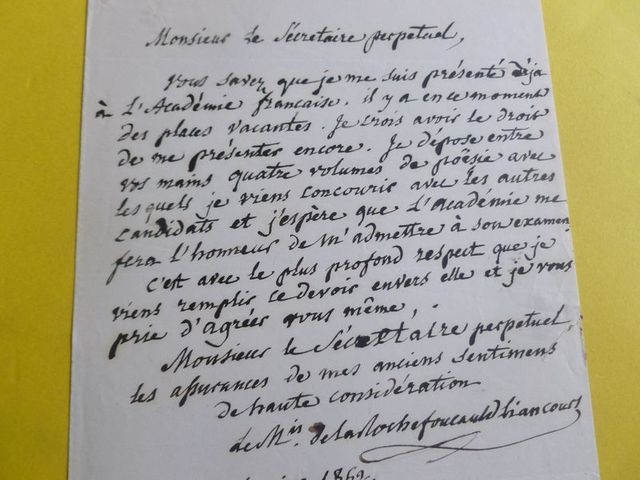 Monsieur le Sécretaire perpetuel,
vous savez que je me suis présenté déja
à L'Académie française. il y a en ce moment
des places vacantes. Je crois avoir le droit
de me présenter encore. Je dépose entre
vos mains quatre volumes de poësie avec
les quels je viens concourir avec les autres
candidats et j'espère que L'académie me
fera l'honneur de m'admettre à son examen
c'est avec le plus profond respect que je
viens remplir ce devoir envers elle et je vous
prie d'agréer vous même,
Monsieur le Sécretaire perpetuel,
les assurances de mes anciens sentimens
de haute considération
le Mis. de la Rochefoucauld liancourt
1862.